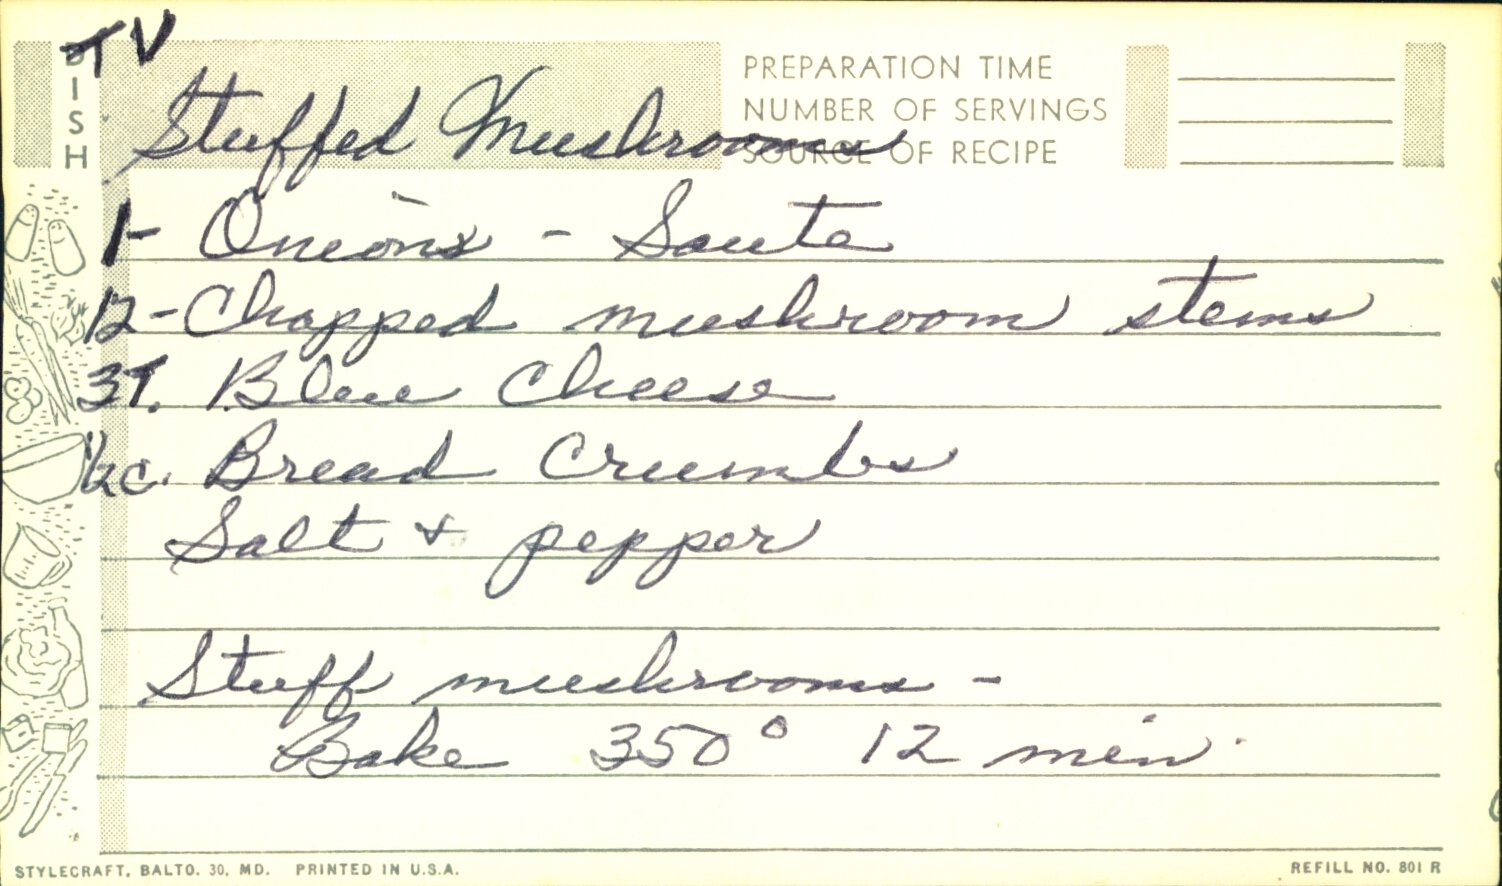 TV
DISH
Stuffed Mushrooms
PREPARATION TIME
NUMBER OF SERVINGS
SOURCE OF RECIPE
1- Onions - Saute
12- Chopped mushroom stems
3T. Bleu Cheese
1/2 c. Bread Crumbs
Salt + pepper
Stuff mushrooms -
Bake 350° 12 min.
STYLECRAFT, BALTO. 30, MD. PRINTED IN U.S.A.
REFILL NO. 801 R